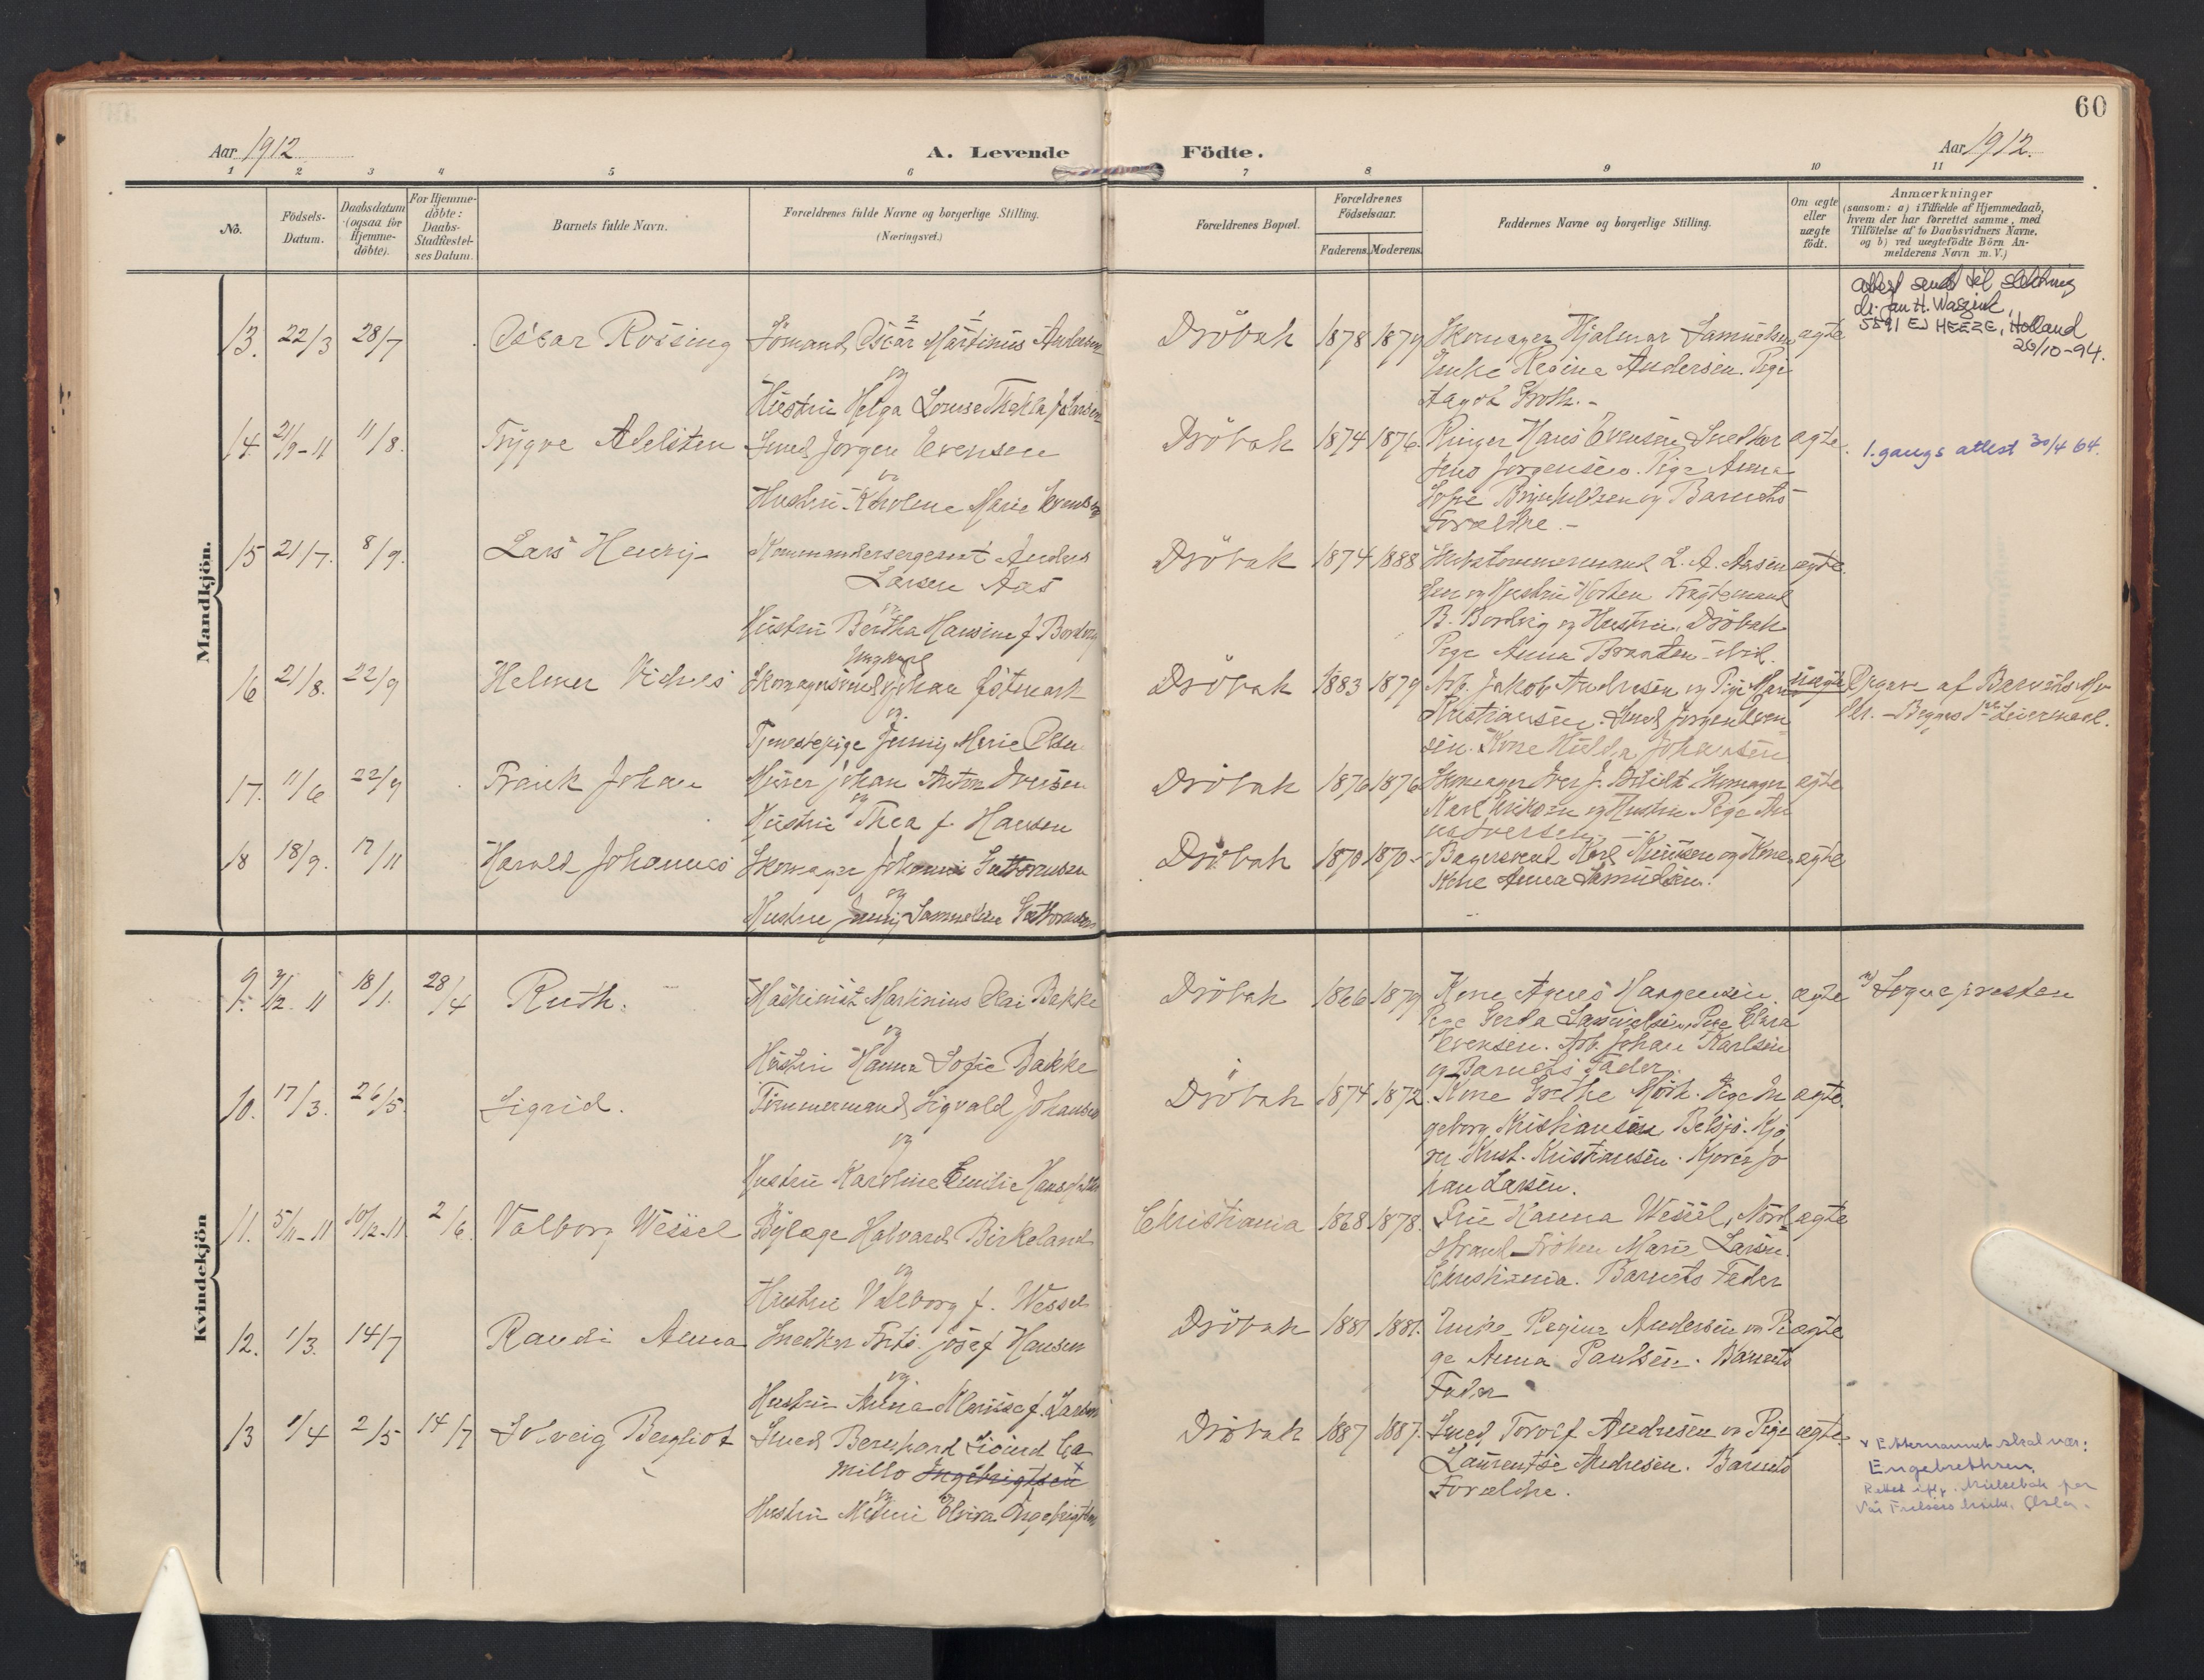 60
Aar 1912
A. Levende Födte.
Aar 1912.
1 2 3 4 5 6 7 8 9 10 11
No.
Födsels-
Datum.
Daabsdatum
(ogsaa for
Hjemme-
döbte).
For Hjemme-
döbte:
Daabs-
Stadfæstel-
ses Datum.
Barnets fulde Navn.
Forældrenes fulde Navne og borgerlige Stilling.
(Næringsvei.)
Forældrenes Bopæl.
Forældrenes
Födselsaar.
Faderens. Moderens.
Faddernes Navne og borgerlige Stilling.
Om ægte
eller
uægte
födt.
Anmærkninger
(saasom: a) i Tilfælde af Hjemmedaab,
hvem der har forrettet samme, med
Tilföielse af to Daabsvidners Navne,
og b) ved uægtefödte Börn An-
melderens Navn m. V.)
Mandkjön.
13. 22/3 28/7 Oscar Rossing
Sömand Oscar Martinus Andersen
og
Hustru Helga Louise Thekla f. Larsen
Dröbak 1878 1879
Skomager Hjalmar Samuelsen
Enke Regine Andersen. Pige
Aagot Groth. -
ægte
attest sendt til slektning
dr. Jan H. Waszink,
5591 EJ HEEZE, Holland
26/10-94.
14 21/9-11 11/8. Trygve Adelsten
Smed Jörgen Evensen
og
Hustru Karoline Marie Evensen
Dröbak 1874 1876.
Ringer Hans Evensen, Snedker
Jens Jörgensen. Pige Anna
Sofie Brynhildsen og Barnets
Forældre. -
ægte.
1. gangs attest 30/4 64.
15 21/7. 8/9. Lars Henry
Kommandersergeant Anders
Larsen Aas
og
Hustru Bertha Hansine f. Bordvig
Dröbak 1874 1888
Skibstömmermand L. A. Aasen
og Hustru Horten Fragtemand
B. Bordvig og Hustru, Dröbak
Pige Anna Braaten
ægte.
16 21/8. 22/9 Helmer
Ungkarl
Skomagersvend Johan
og
Tjenestepige Jenny Marie Olsen
Dröbak 1883 1879
Arb. Jakob Andresen og Pige
Kristiansen. Smed Jörgen Even
sen. Kone Hulda Johansen
uægte
Opgave af Barnets Mo
der. - Begges 1ste Leiermaal.
17. 11/6 22/9 Frank Johan
Murer Johan Anton Iversen
og
Hustru Thea f. Hansen
Dröbak 1876 1876
Skomager Iver J. Skomager
Karl Eriksen og Hustru. Pige An
na Iversen.
ægte
18 18/9. 17/11 Harald Johannes
Skomager Johannes Guttormsen
og
Hustru Jenny Samueline Guttormsen
Dröbak 1870 1870
Bagersvend Karl og Kone
Kone Anna Samuelsen.
ægte
Kvindekjön
9. /12-11 18/1. 28/4 Ruth.
Maskinist Martinius Olai Bakke
og
Hustru Hanna Sofie Bakke
Dröbak 1866 1879
Kone Agnes Haagensen.
Pige Gerda Samuelsen, Pige Clara
Evensen. Arb. Johan Karlsen
og Barnets Fader.
ægte
Sognepresten
10. 17/3. 26/5. Sigrid.
Tömmermand Sigvald Johansen
og
Hustru Karoline Emilie
Dröbak 1874 1872.
Kone Grethe Mörk. Pige In
geborg Kristiansen Belsjö. Kjö
rer Krist. Kristiansen. Kjörer Jo
han Larsen.
ægte.
11. 5/11-11 10/12-11. 2/6. Valborg Wessel
Bylæge Halvard Birkeland
og
Hustru Valborg f. Wessel
Christiania 1868 1878.
Fru Hanna Wessel, Nord
strand Fröken Marie Larsen
Christiania. Barnets Fader
ægte
12. 1/3. 14/7 Randi Anna
Snedker Josef Hansen
og
Hustru Anna f. Larsen
Dröbak 1881 1881.
Enke Regine Andersen og Pi
ge Anna Paulsen. Barnets
Fader
ægte
13 1/4 2/5 14/7 Solveig Bergliot
Smed Bernhard Sigurd Ca
millo Ingebrigtsen x
og
Hustru Elvira Ingebrigtsen
Dröbak 1887 1887.
Smed Torolf Andresen og Pige
Laurentse Andresen. Barnets
Forældre.
ægte.
x Etternavnet skal være:
Engebrethsen.
Rettet iflg. kirkebok for
Vår Frelsers kirke, Oslo.